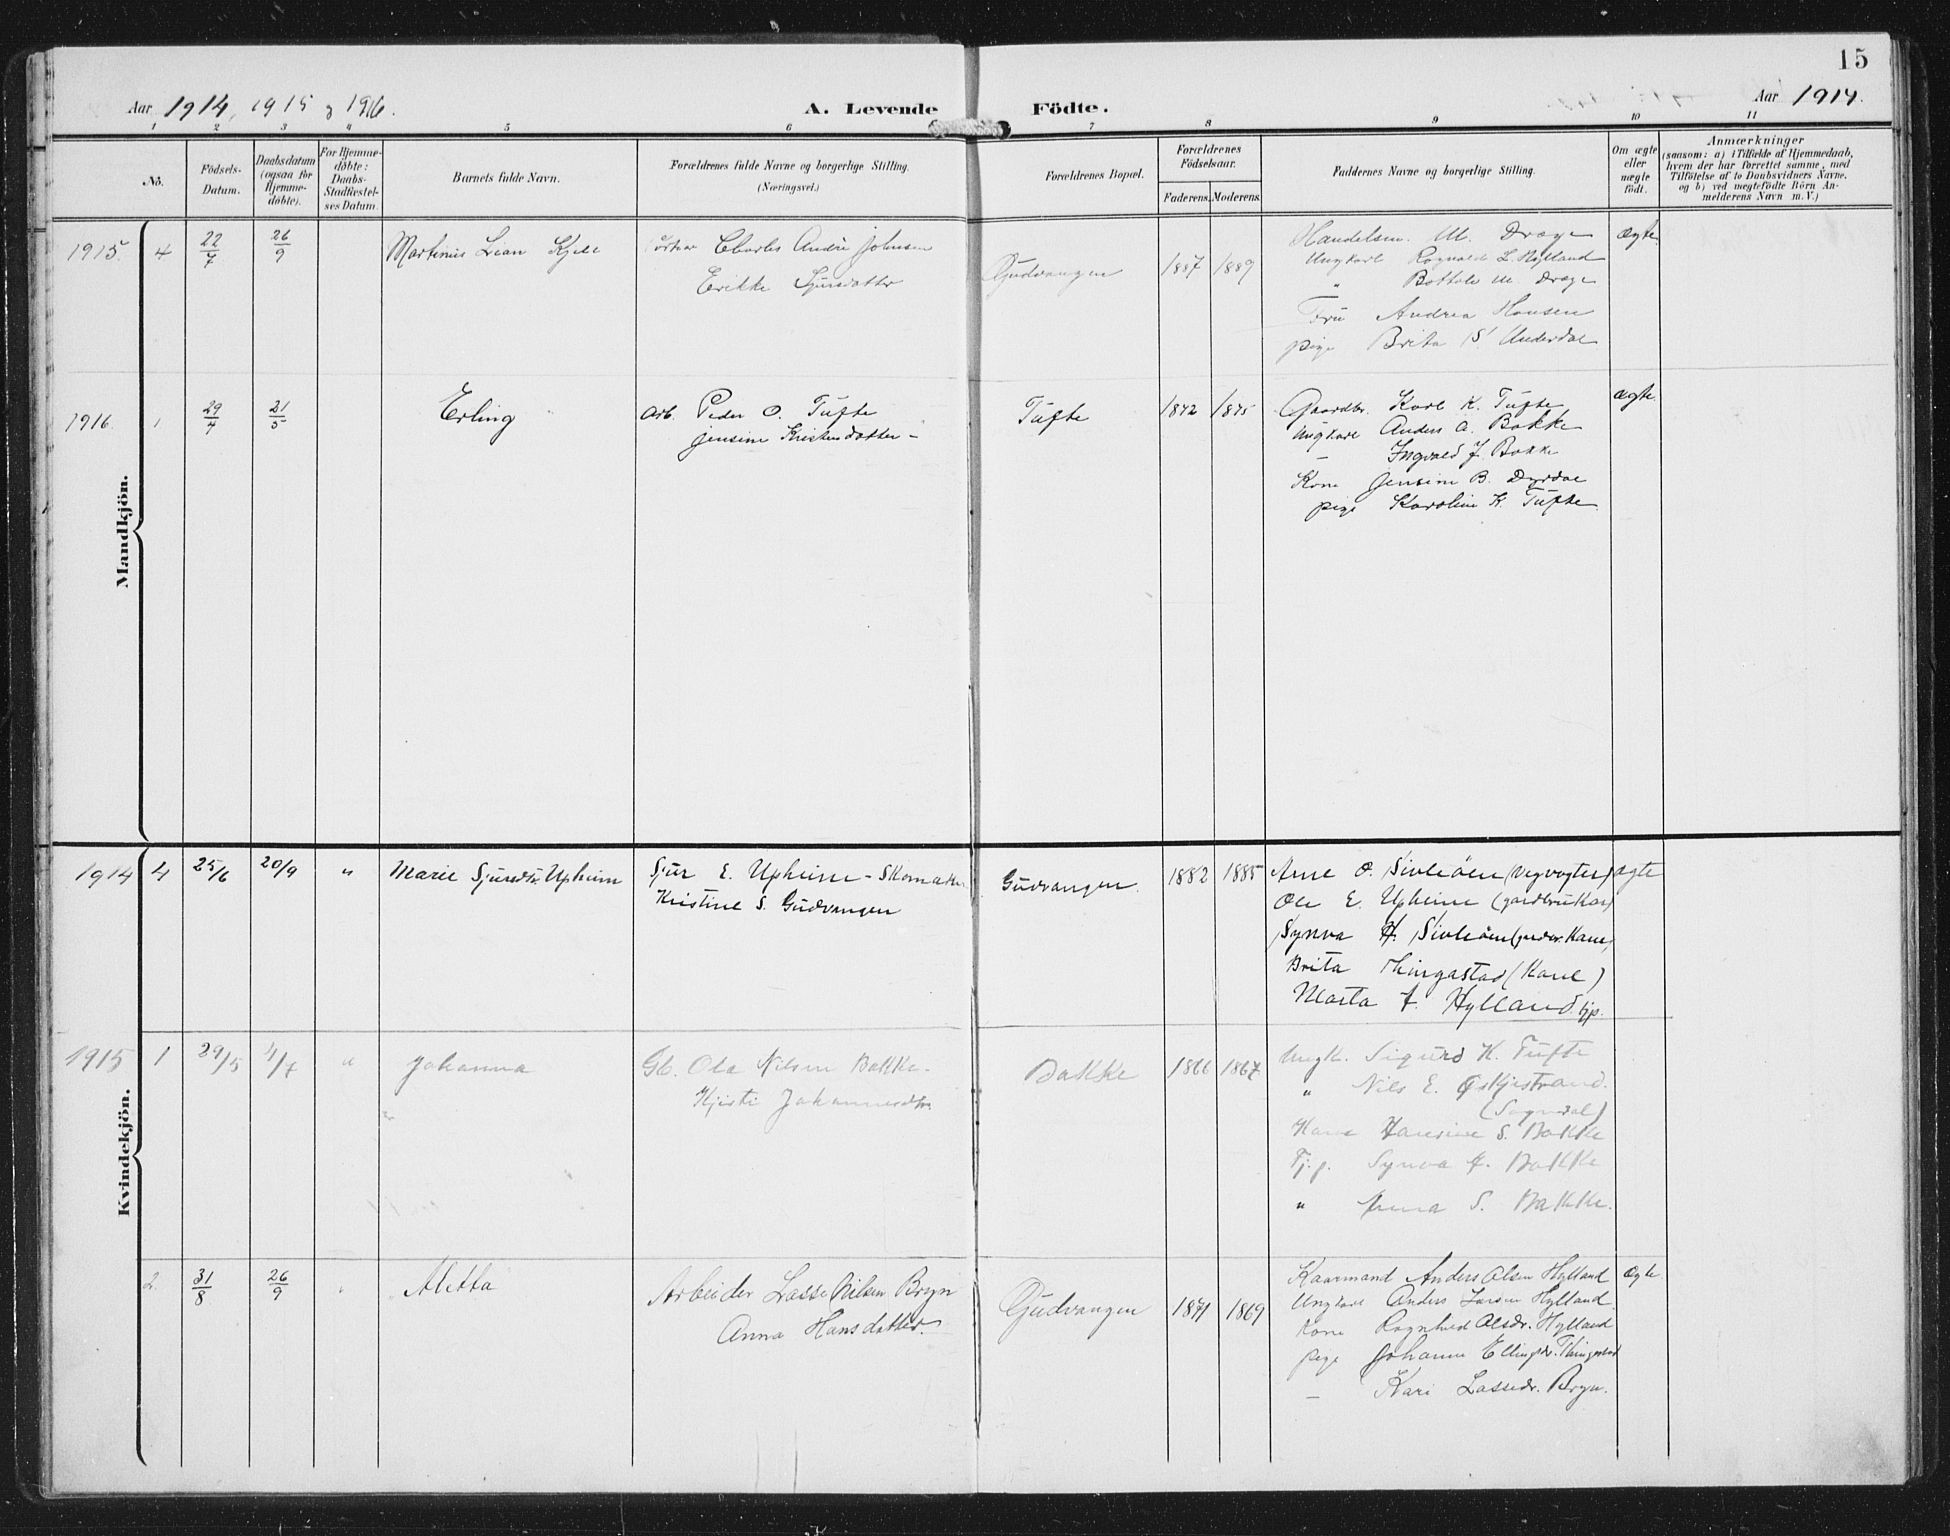 15
Aar 1914, 1915 & 1916.
A. Levende Födte.
Aar 1914.
1 2 3 4 5 6 7 8 9 10 11
No.
Födsels-Datum.
Daabsdatum (ogsaa for Hjemme-döbte).
For Hjemme-döbte: Daabs-Stadfæstel-ses Datum.
Barnets fulde Navn.
Forældrenes fulde Navne og borgerlige Stilling. (Næringsvei.)
Forældrenes Bopæl.
Forældrenes Födselsaar.
Faderens. Moderens.
Faddernes Navne og borgerlige Stilling.
Om ægte eller uægte födt.
Anmærkninger
(saasom: a) i Tilfælde af Hjemmedaab, hvem der har forrettet samme, med Tilföielse af to Daabsvidners Navne, og b) ved uegtefödte Börn An-melderens Navn m. V.)
Mandkjön.
1915. 4 22/7 26/9 Martinus Lean Kjell
Charles Andre Johnsen
Erikke Sjursdatter
Gudvangen 1887 1889
Handelsm. M. Dræge
Ungkarl Ragnvald L Hylland
" Bottolv M Dræge
Fru Andrea Hansen
pige Brita S. Underdal
Ægte
1916. 1 29/4 21/5 Erling
Arb. Peder O. Tufte
Jensine Kristensdatter -
Tufte 1872 1875
Gaardbr. Karl K. Tufte
Ungkarl Anders A. Bakke
— Ingvald J. Bakke
Kone Jensine B. Dyrdal
pige Karoline K. Tufte
Ægte.
Kvindekjön.
1914 4 25/6 20/9 " Marie Sjursdtr. Upheim
Sjur E. Upheim - Skomaker
Kristine S. Gudvangen
Gudvangen. 1882 1885
Arne O. Sivleöen (Vegvogter)
Ole E. Upheim (gardbrukar)
Synva H. Sivleöen
Brita Thingastad (Kone)
Marta A. Hylland tjp.
ægte
1915 1 29/5 4/7 " Johanna
Gb. Ola Nilsen Bakke.
Kjersti Johannesdtr.
Bakke 1866 1867
Ungk. Sigurd K. Tufte
" Nils E. Eskjestrand.
(Sogndal)
Kone Hansine S. Bakke
Tj.p. Synva A. Bakke
" Anna S. Bakke.
2. 31/8 26/9 " Aletta
Arbeider Lasse Nilsen Bryn
Anna Hansdatter.
Gudvangen 1871 1869
Kaarmand Anders Olsen Hylland
Ungkarl Anders Larsen Hylland
Kone Ragnhild Olsdr. Hylland
pige Johanne Ellingsdr. Thingastad
— Kari Lassedr. Bryn.
Ægte